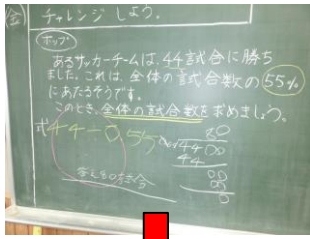 チャレンジしよう。
ホップ
あるサッカーチームは、44試合に勝ち
ました。これは、全体の試合数の55%
にあたるそうです。
このとき、全体の試合数を求めましょう。
44-0.55
80
4400
44
00
0
答え80試合